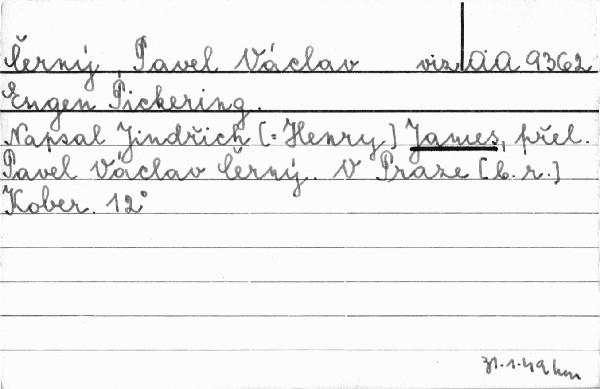 Černý, Pavel Václav viz AA 9362
Eugen Pickering.
Napsal Jindřich [= Henry] James, přel.
Pavel Václav Černý. V Praze [b. r.]
Kober. 12°
31.1.49